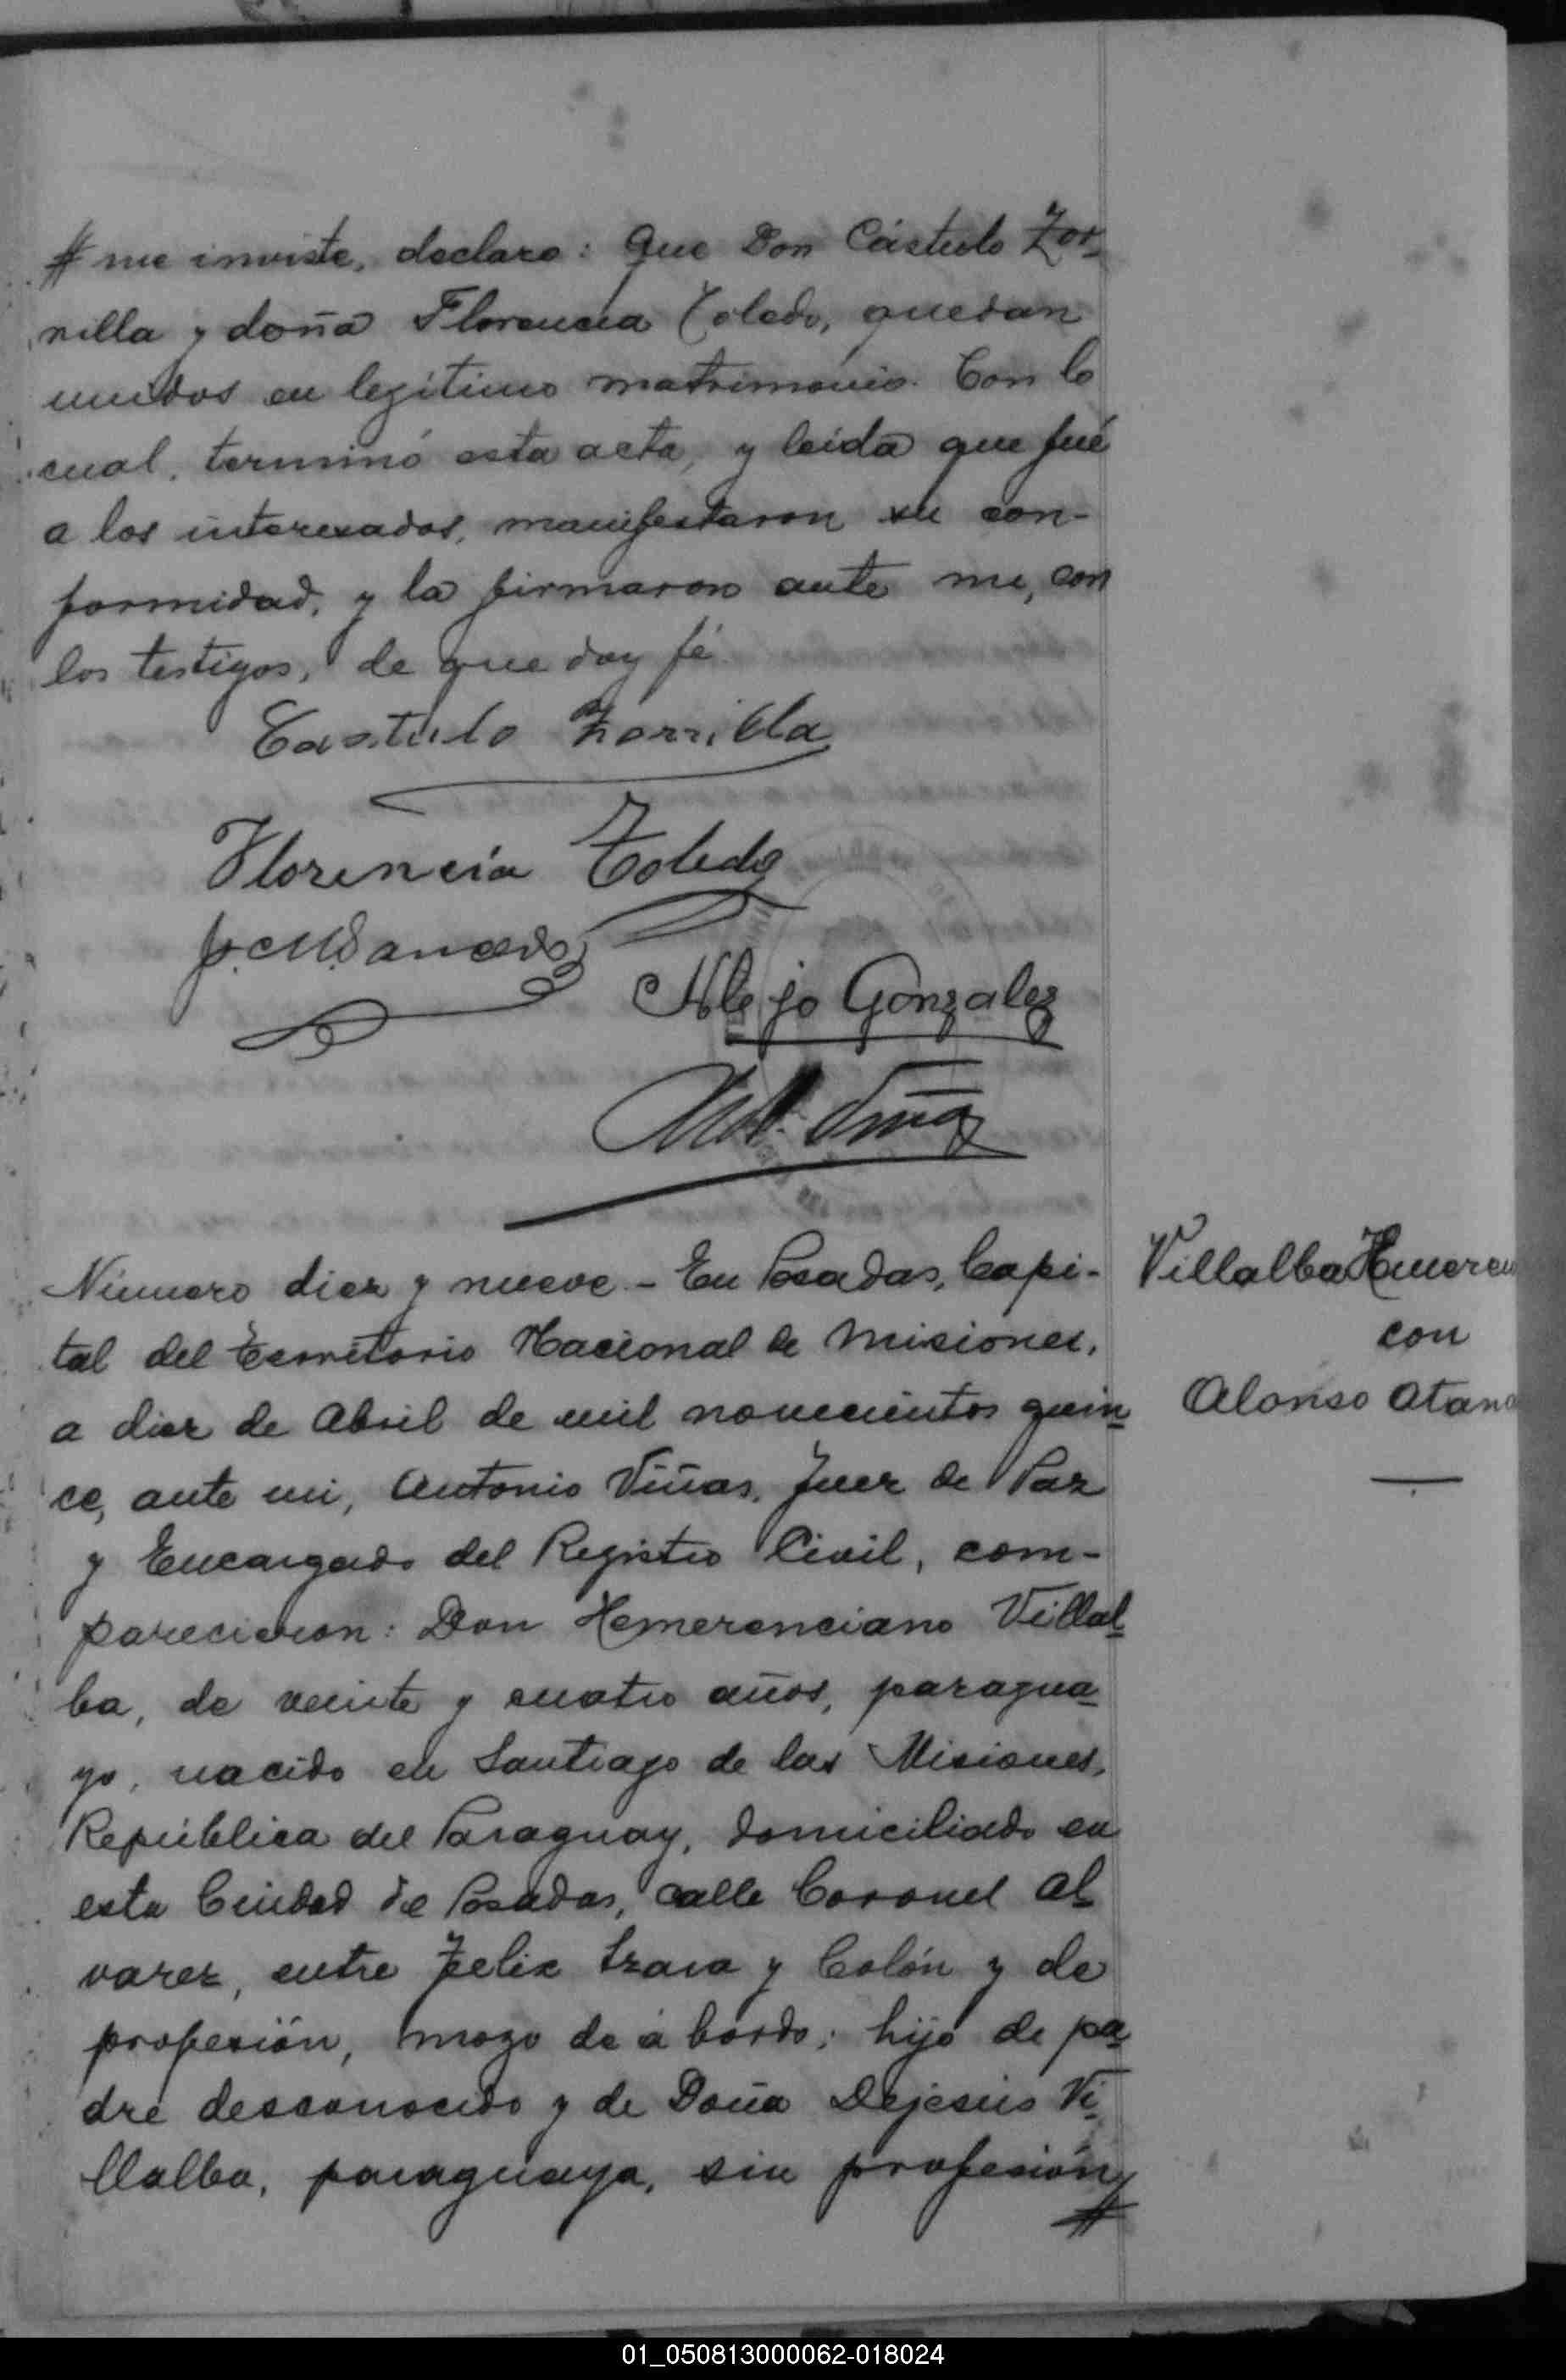 # me inviste, declaro: Que Don Cástulo Zor-
rilla y doña Florencia Toledo, quedan
unidos en legítimo matrimonio. Con lo
cual, terminó esta acta, y leída que fué
a los interesados, manifestaron su con-
formidad, y la firmaron ante mí, con
los testigos, de que doy fé
Castulo Zorrilla
Florencia Toledo
Alejo Gonzalez
Número diez y nueve - En Posadas, Capi-
tal del Territorio Nacional de Misiones,
a diez de Abril de mil novecientos quin-
ce, ante mi, Antonio Viñas, Juez de Paz
y Encargado del Registro Civil, com-
parecieron: Don Hemerenciano Villal-
ba, de veinte y cuatro años, paragua-
yo, nacido en Santiago de las Misiones,
República del Paraguay, domiciliado en
esta Ciudad de Posadas, calle Coronel Al-
varez, entre Felix Azara y Colón y de
profesión, mozo de á bordo; hijo de pa-
dre desconocido y de Doña Dejesús Vi-
llalba, paraguaya, sin profesión,
#
Villalba Hemeren
con
Alonso Atana
01_050813000062-018024